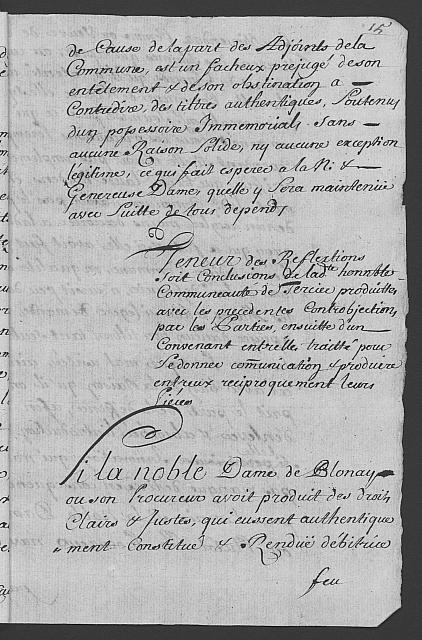 15
de Cause de la part des Adjoints de la
Commune, est un facheux préjugé de son
entêlement & de son obstination a
Contredire, des titres authentiques, Soutenus
d'un possessoire Immemorial. Sans
aucune Raison Solide, ny aucune exception
légitime, ce qui fait esperer a la N. &
Genereuse Dame, quelle y Sera maintenüe
avec Suitte de tous depends
Teneur des Reflextions
Soit Conclusions de lad.te honorable
Communeauté de Tercier produittes
avec les précedentes Controbjections
par les Parties, ensuitte d'un
Convenant entrelles traitté pour
Se donner communication & produire
entreux reciproquement leurs
Pièces
Si la noble Dame de Blonay
ou son Procureur avoit produit des droits
Clairs & Justes, qui eussent authentique
ment Constitué & Rendüe débitrice
feu